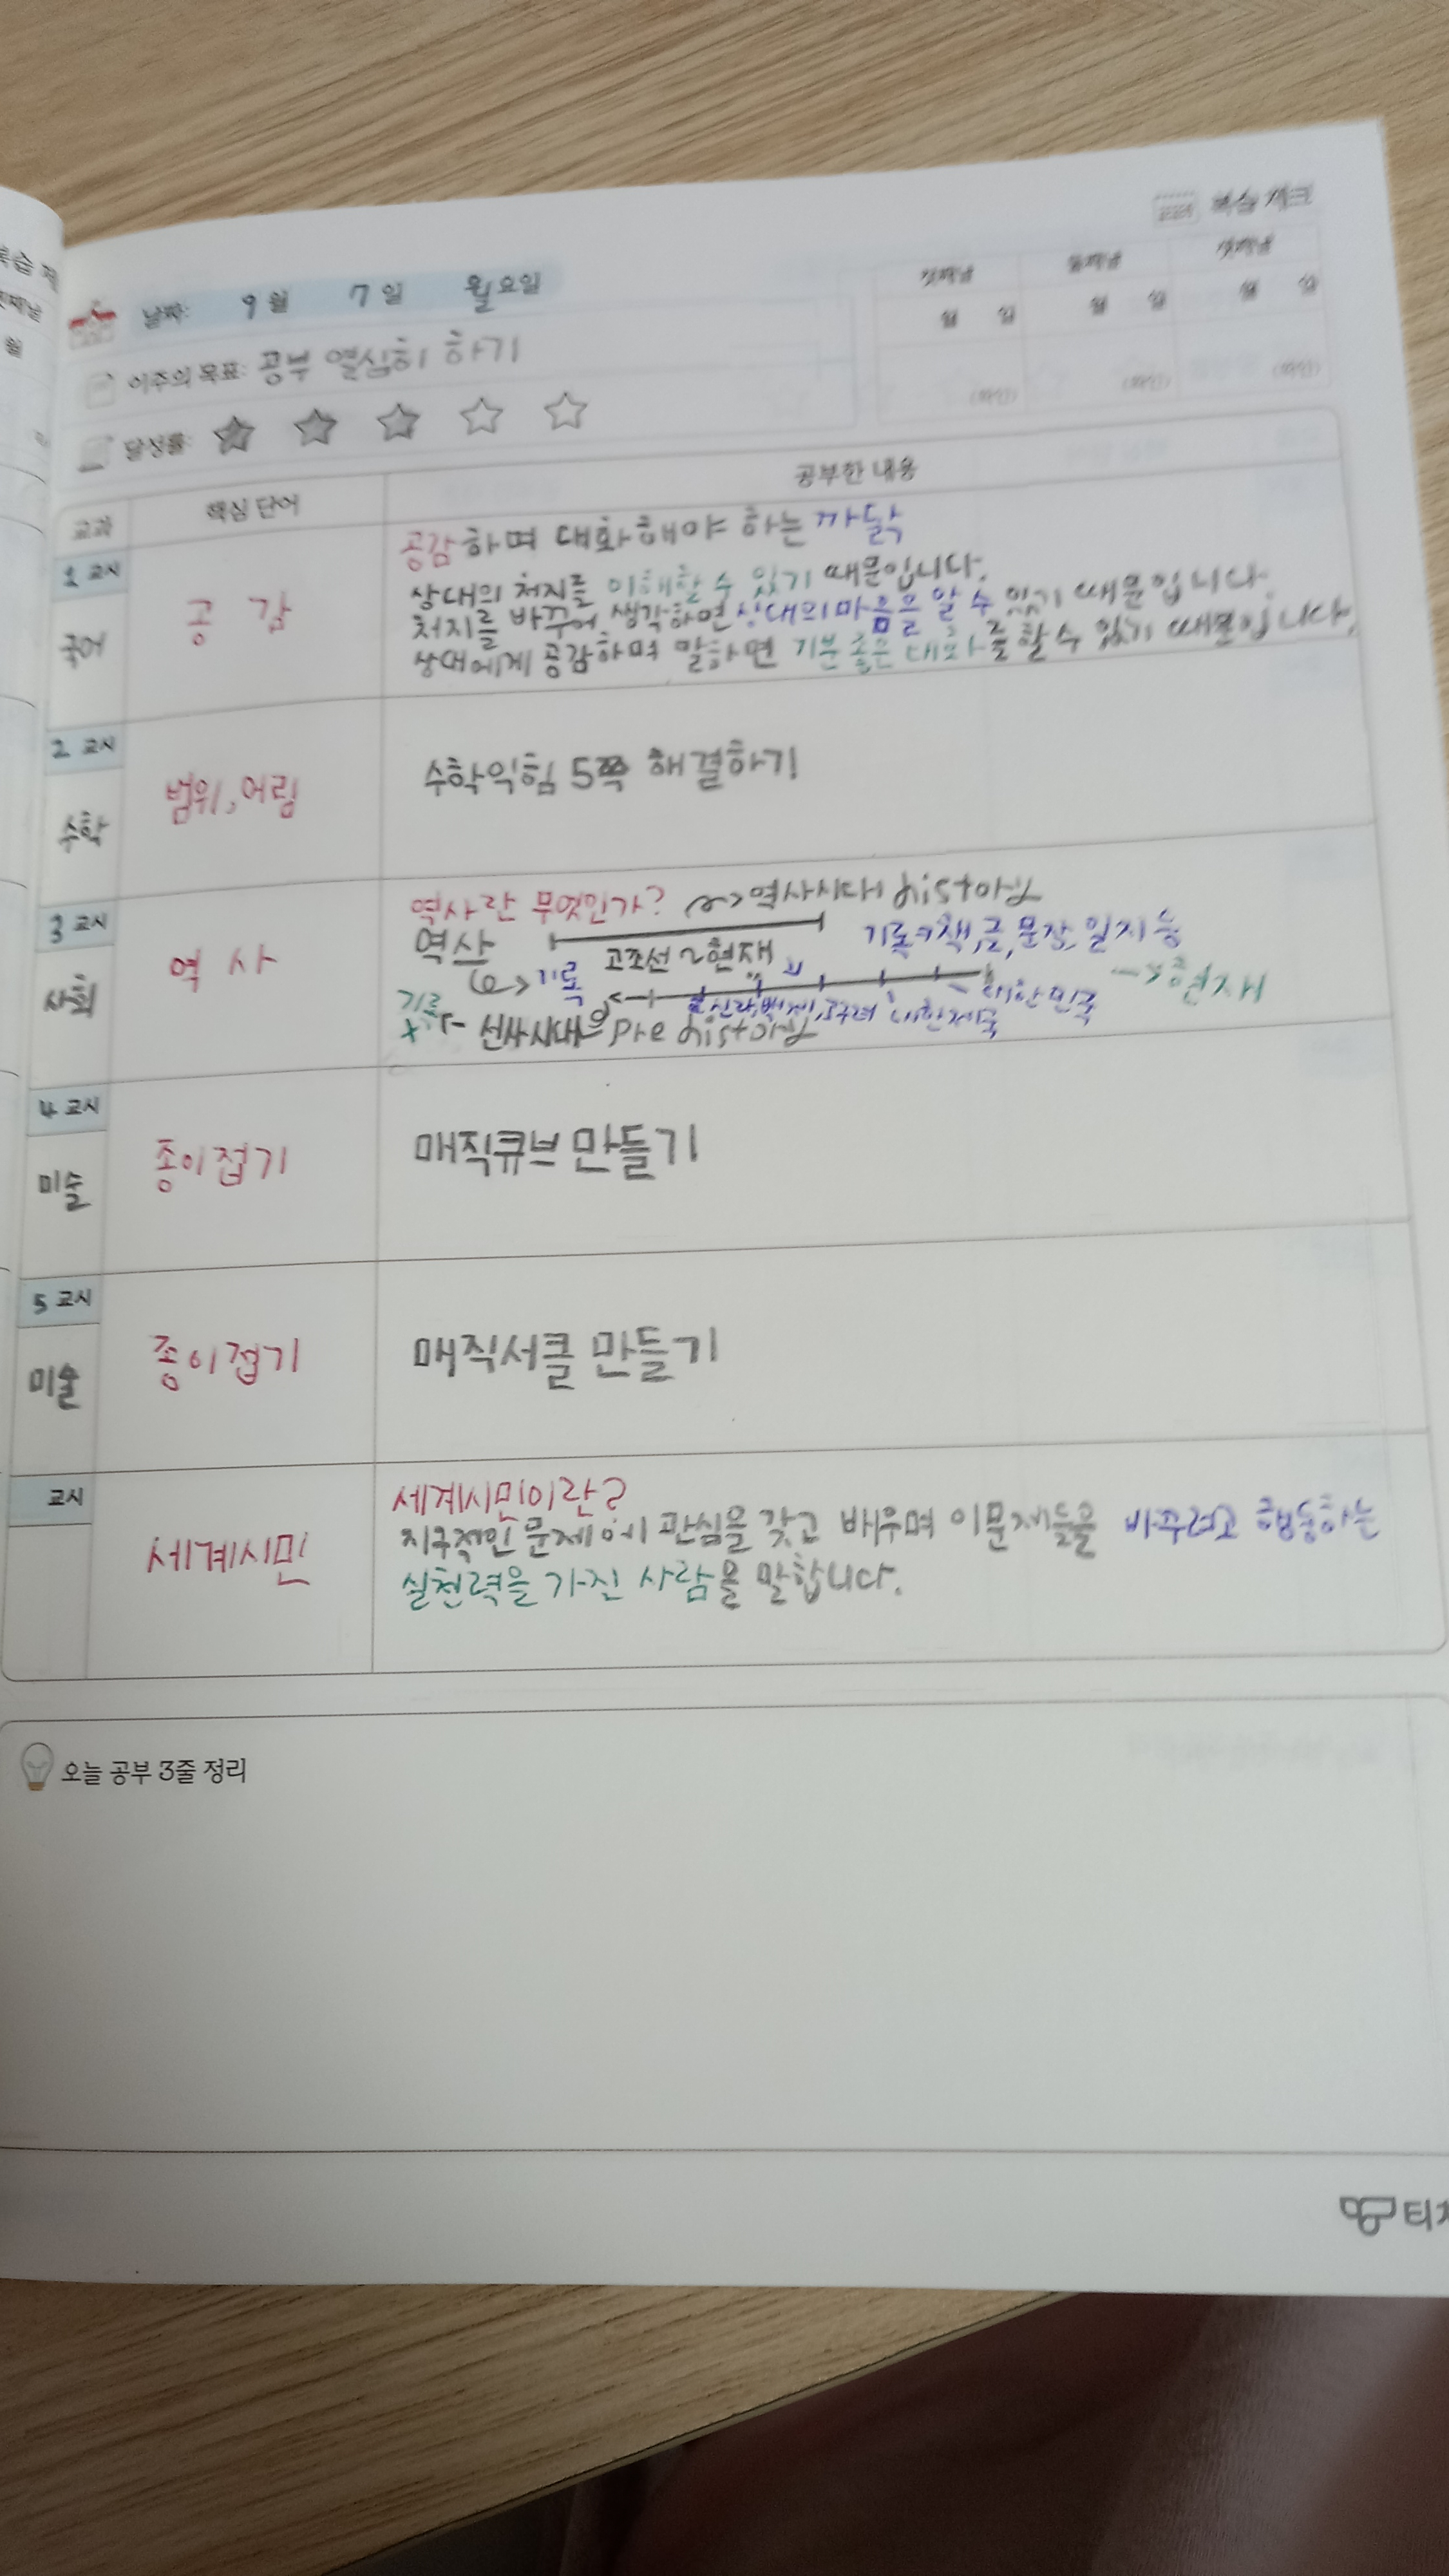 복습 체크
첫째날 둘째날 셋째날
월 일 월 일 월 일
(확인) (확인) (확인)
날짜: 9월 7일 월요일
이주의 목표: 공부 열심히 하기
달성률:
교과 핵심 단어 공부한 내용
1 교시
국어
공감
공감하며 대화해야 하는 까닭
상대의 처지를 이해할 수 있기 때문입니다.
처지를 바꾸어 생각하면 상대의 마음을 알 수 있기 때문입니다.
상대에게 공감하며 말하면 기분 좋은 대화를 할 수 있기 때문입니다.
2 교시
수학
범위, 어림
수학익힘 5쪽 해결하기
3 교시
사회
역사
역사란 무엇인가? 역사시대 history
역사 고조선~현재 기록→책,글,문장,일지 등
기록
기록 X
신라,백제,고구려 대한제국 대한민국 현재
선사시대 pre history
4 교시
미술
종이접기
매직큐브 만들기
5 교시
미술
종이접기
매직서클 만들기
교시
세계시민
세계시민이란?
지구적인 문제에 관심을 갖고 배우며 이문제들을 바꾸려고 행동하는
실천력을 가진 사람을 말합니다.
오늘 공부 3줄 정리